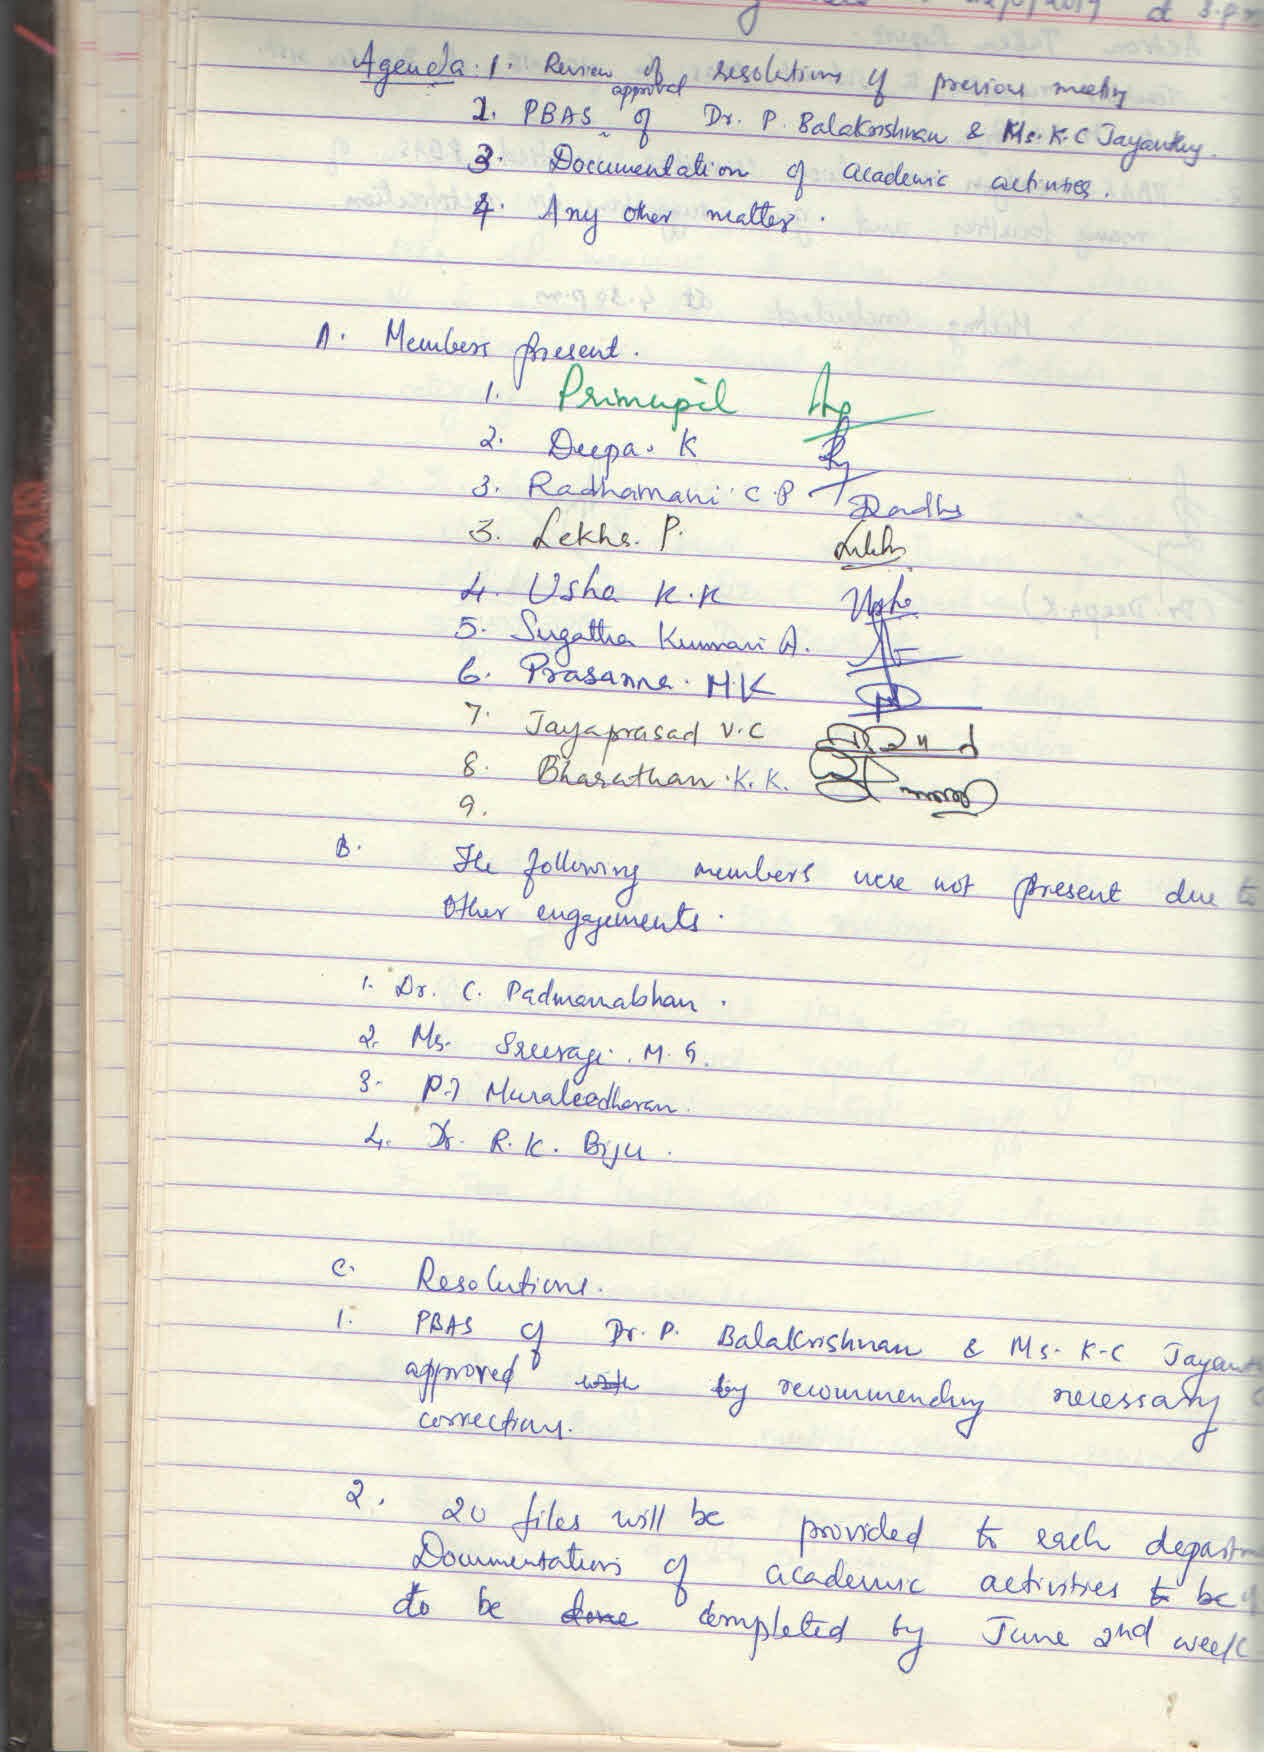 2019 at 3.p.m
Agenda: 1. Review of resolutions of previous meeting
approval
2. PBAS of Dr. P. Balakrishnan & Ms. K.C Jayanthy.
3. Documentation of academic activities.
4. Any other matter.
A. Members present.
1. Principal
2. Deepa. K
3. Radhamani C.P Radha
3. Lekha. P. Lekha
4. Usha K.K Usha
5. Sugatha Kumari A.
6. Prasanna. M.K
7. Jayaprasad V.C
8. Bharathan. K.K.
9.
B. The following members were not present due to
other engagements.
1. Dr. C. Padmanabhan.
2. Ms. Sreeragi. M.G.
3. P.I Muraleedharan.
4. Dr. R.K. Biju.
C. Resolutions.
1. PBAS of Dr. P. Balakrishnan & Ms. K-C Jayant
approved with by recommending necessary
corrections.
2. 20 files will be provided to each departm
Documentations of academic activities to be
to be done completed by June 2nd week